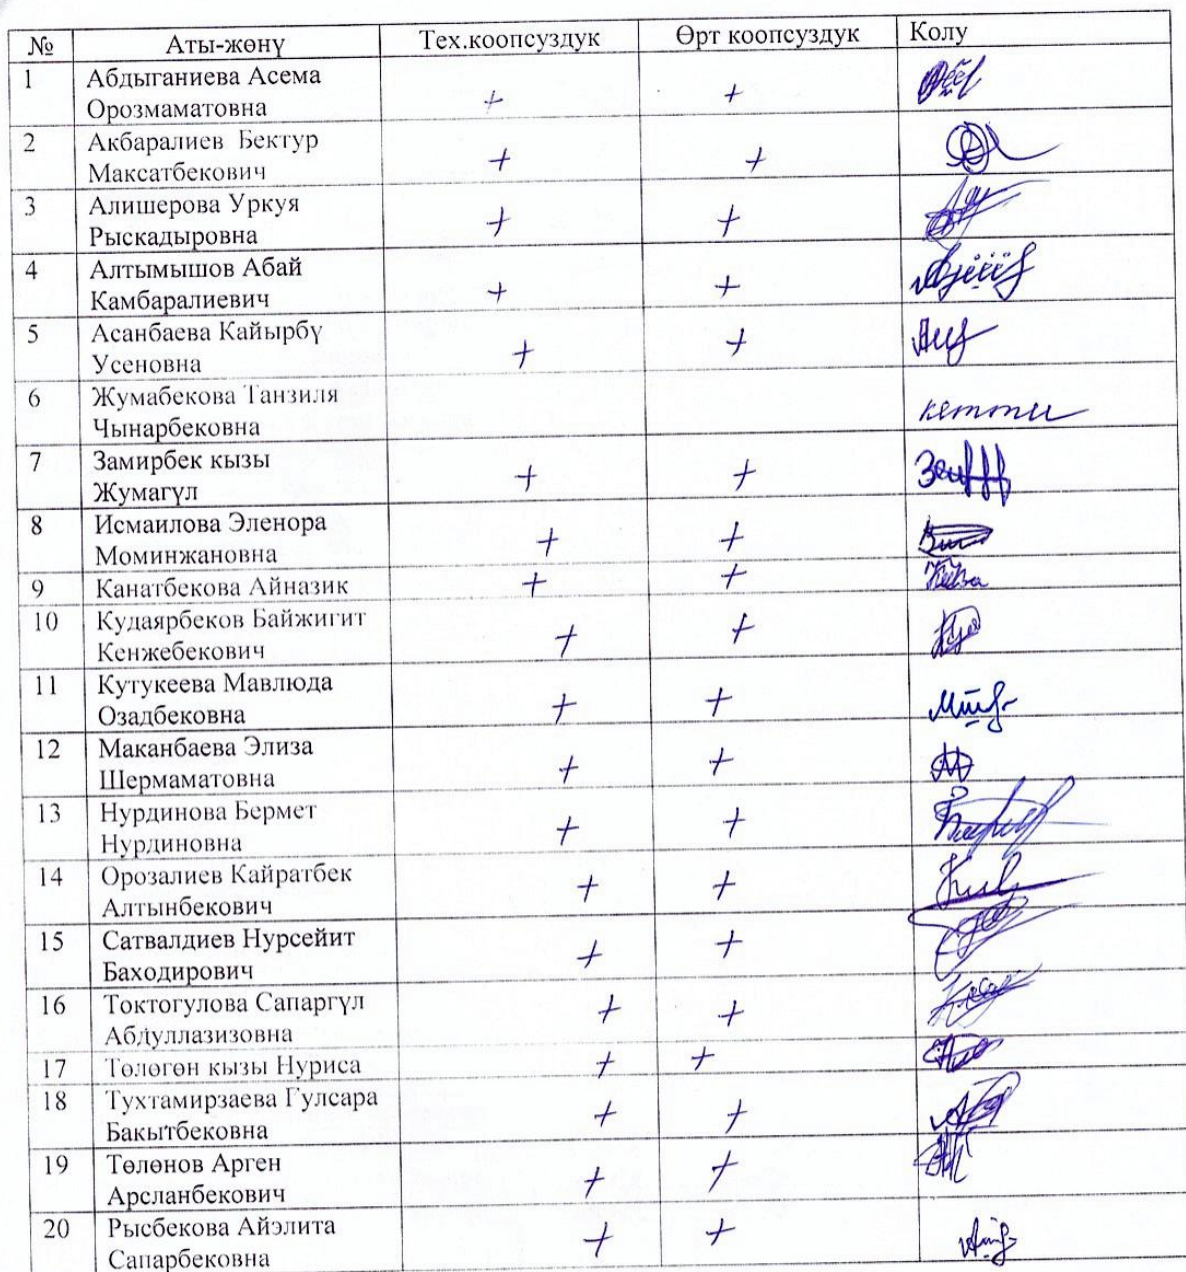 № Аты-жөнү Тех.коопсуздук Өрт коопсуздук Колу
1 Абдыганиева Асема
Орозмаматовна + +
2 Акбаралиев Бектур
Максатбекович + +
3 Алишерова Уркуя
Рыскадыровна + +
4 Алтымышов Абай
Камбаралиевич + +
5 Асанбаева Кайырбү
Усеновна + +
6 Жумабекова Танзиля
Чынарбековна кетти
7 Замирбек кызы
Жумагүл + +
8 Исмаилова Эленора
Моминжановна + +
9 Канатбекова Айназик + +
10 Кудаярбеков Байжигит
Кенжебекович + +
11 Кутукеева Мавлюда
Озадбековна + +
12 Маканбаева Элиза
Шермаматовна + +
13 Нурдинова Бермет
Нурдиновна + +
14 Орозалиев Кайратбек
Алтынбекович + +
15 Сатвалдиев Нурсейит
Баходирович + +
16 Токтогулова Сапаргүл
Абдуллазизовна + +
17 Төлөгөн кызы Нуриса + +
18 Тухтамирзаева Гулсара
Бакытбековна + +
19 Төлөнов Арген
Арсланбекович + +
20 Рысбекова Айэлита
Сапарбековна + +